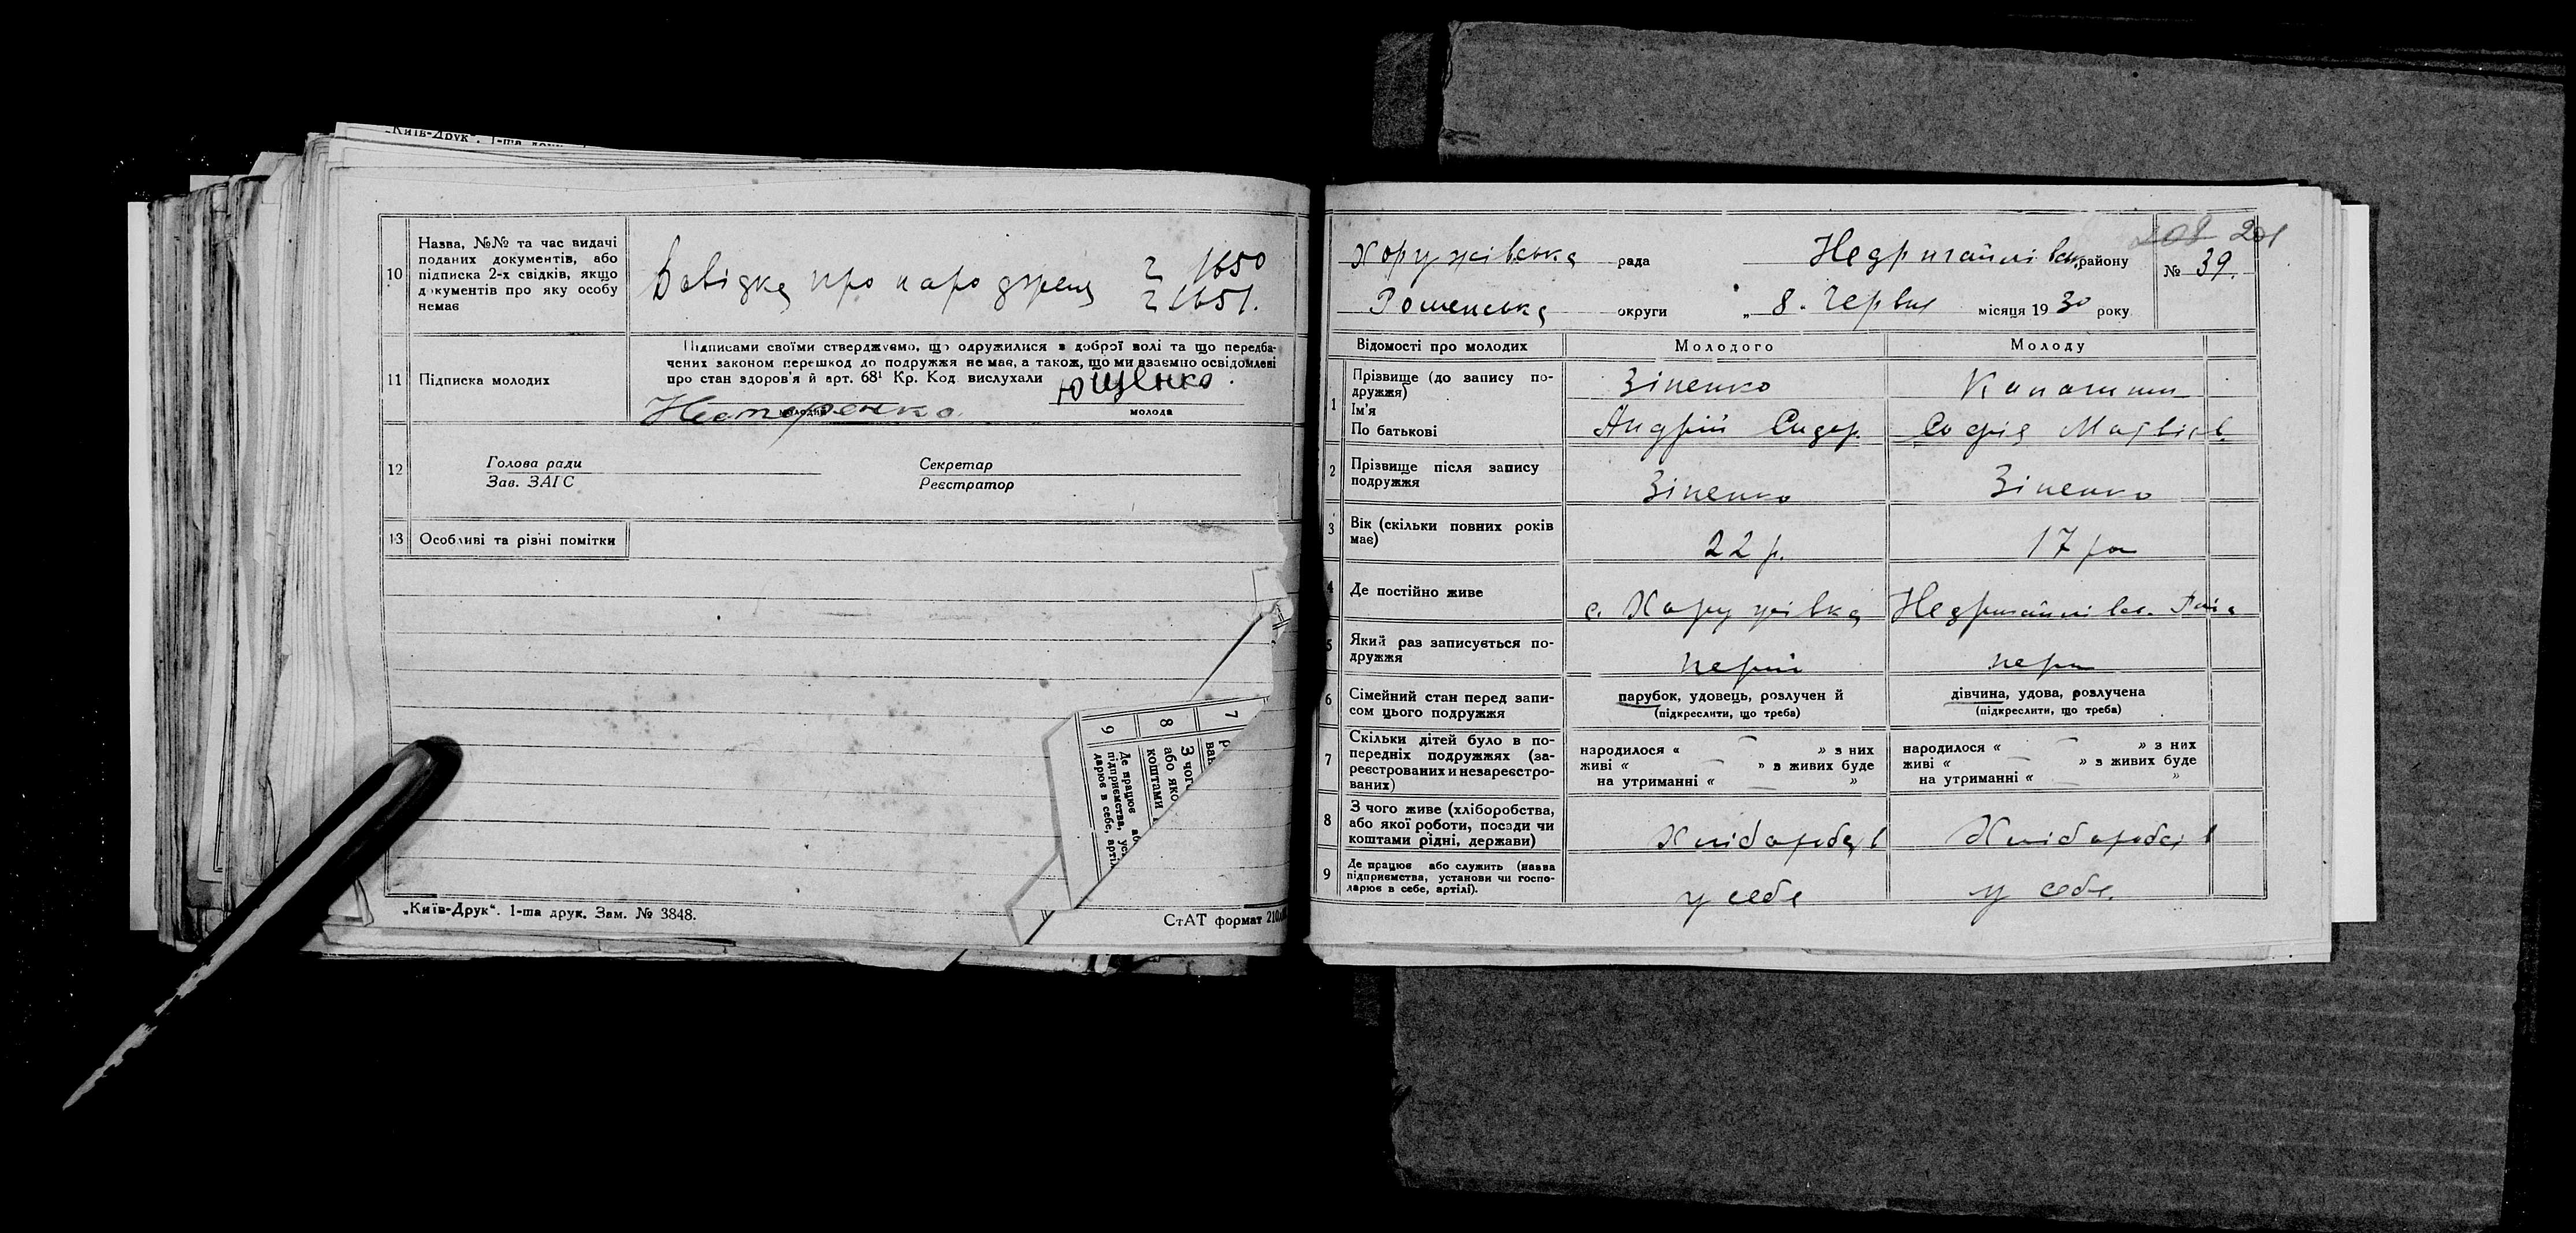 „Київ-Друк“. 1-ша друк.
10
Назва, №№ та час видачі
поданих документів, або
підписка 2-х свідків, якщо
документів про яку особу
немає
Довідка про народжен 1650
1651.
11
Підписка молодих
Підписами своїми стверджуємо, що одружилися з доброї волі та що передба-
чених законом перешкод до подружжя не має, а також, що ми взаємно освідомлені
про стан здоров'я й арт. 68¹ Кр. Код вислухали Ющенко.
Нестеренко
молодий
молода
12
Голова ради
Зав. ЗАГС
Секретар
Реєстратор
13
Особливі та різні помітки
7
8
З чого
або яко
коштами
9
Де працює аб
підприємства, ус
дарює в себе, артіл
„Київ-Друк“. 1-ша друк. Зам. № 3848.
СтАТ формат 210
208 201
Хоружівська рада Недригайлівськ району № 39.
Роменська округи „ 8 . Червня місяця 1930 року
Відомості про молодих
Молодого
Молоду
1
Прізвище (до запису по-
дружжя)
Ім'я
По батькові
Зіненко
Андрій Сидор.
Софія Матвієв.
2
Прізвище після запису
подружжя
Зіненко
Зіненко
3
Вік (скільки повних років
має)
22 р.
17 ро
4
Де постійно живе
с. Хоружівка
Недригайлівс.
5
Який раз записується по-
дружжя
перши
перш
6
Сімейний стан перед запи-
сом цього подружжя
парубок, удовець, розлучен й
(підкреслити, що треба)
дівчина, удова, розлучена
(підкреслити, що треба)
7
Скільки дітей було в по-
передніх подружжях (за-
реєстрованих и незареєстро-
ваних)
народилося « — » з них
живі « — » з живих буде
на утриманні « — »
народилося « — » з них
живі « — » з живих буде
на утриманні « — »
8
З чого живе (хліборобства,
або якої роботи, посади чи
коштами рідні, держави)
Хлібороб в
Хлібороб в
9
Де працює або служить (назва
підприємства, установи чи госпо-
дарює в себе, артілі).
у себе
у себе.